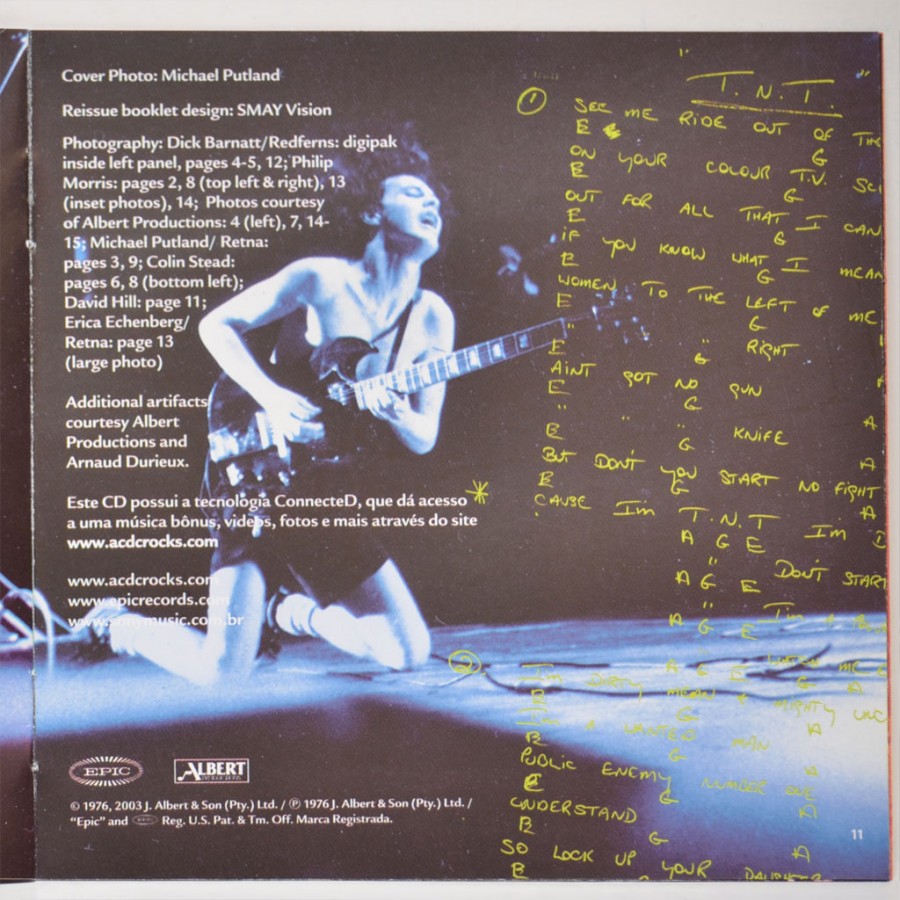 Cover Photo: Michael Putland
Reissue booklet design: SMAY Vision
Photography: Dick Barnatt/Redferns: digipak
inside left panel, pages 4-5, 12; Philip
Morris: pages 2, 8 (top left & right), 13
(inset photos), 14; Photos courtesy
of Albert Productions: 4 (left), 7, 14-
15; Michael Putland/ Retna:
pages 3, 9; Colin Stead:
pages 6, 8 (bottom left);
David Hill: page 11;
Erica Echenberg/
Retna: page 13
(large photo)
Additional artifacts
courtesy Albert
Productions and
Arnaud Durieux.
Este CD possui a tecnologia ConnecteD, que dá acesso
a uma música bônus, videos, fotos e mais através do site
www.acdcrocks.com
www.acdcrocks.com
www.epicrecords.com
www.sonymusic.com.br
EPIC
ALBERT
© 1976, 2003 J. Albert & Son (Pty.) Ltd. / ℗ 1976 J. Albert & Son (Pty.) Ltd. /
"Epic" and EPIC Reg. U.S. Pat. & Tm. Off. Marca Registrada.
" T.N.T. "
① SEE ME RIDE OUT OF THE
E G
ON YOUR COLOUR T.V. SC
E G
OUT FOR ALL THAT I CAN
E G
IF YOU KNOW WHAT I MEAN
E G
WOMEN TO THE LEFT OF ME
E G
" " RIGHT
E G
AINT GOT NO GUN A
E G
" " " KNIFE A
E G
BUT DON'T YOU START NO FIGHT A
E G A
* CAUSE I'm T.N.T I'm D
A G E
" DON'T START
A G E
" I'm A
A G E
A G E WATCH ME
② I'm DIRTY MEAN & MIGHTY UNC
E G A
I'm A WANTED MAN
E G A
PUBLIC ENEMY NUMBER ONE
E G A
UNDERSTAND
E G A
SO LOCK UP YOUR DAUGHTER
E
11